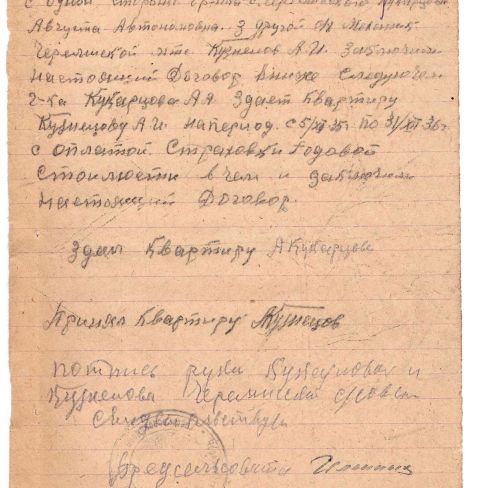 с одной стороны гр-нка с. Черемисского Кукарцова
Августа Автономовна. З другой ст Механик
Черемиской мтс Кузнецов А.И. Заключили
Настоящий Договор Внижеследующем
г-ка Кукарцова А А Здает Квартиру
Кузнецову А.И. на период. с 5/XII 35г по 31/XII 36г
с оплатой. Страховки годовой
стоимости в чем и заключили
настоящий Договор.
Здал Квартиру АКукарцова
Принял квартиру Кузнецов
Потпись руки Кукарцовой и
Кузнецова Черемиский с/совет
Свидетельствует
Предсельсовета